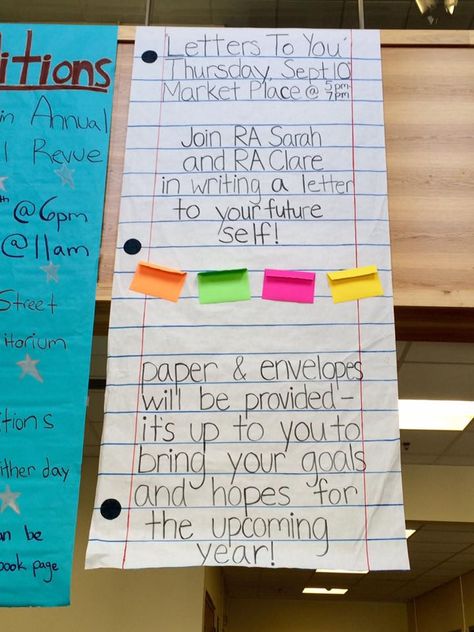 itions
in Annual
Revue
th @6pm
@11am
Street
torium
tions
ither day
an be
book page
Letters To You
Thursday, Sept 10
Market Place @ 5pm-
7pm
Join RA Sarah
and RA Clare
in writing a letter
to your future
self!
paper & envelopes
will be provided-
it's up to you to
bring your goals
and hopes for
the upcoming
year!